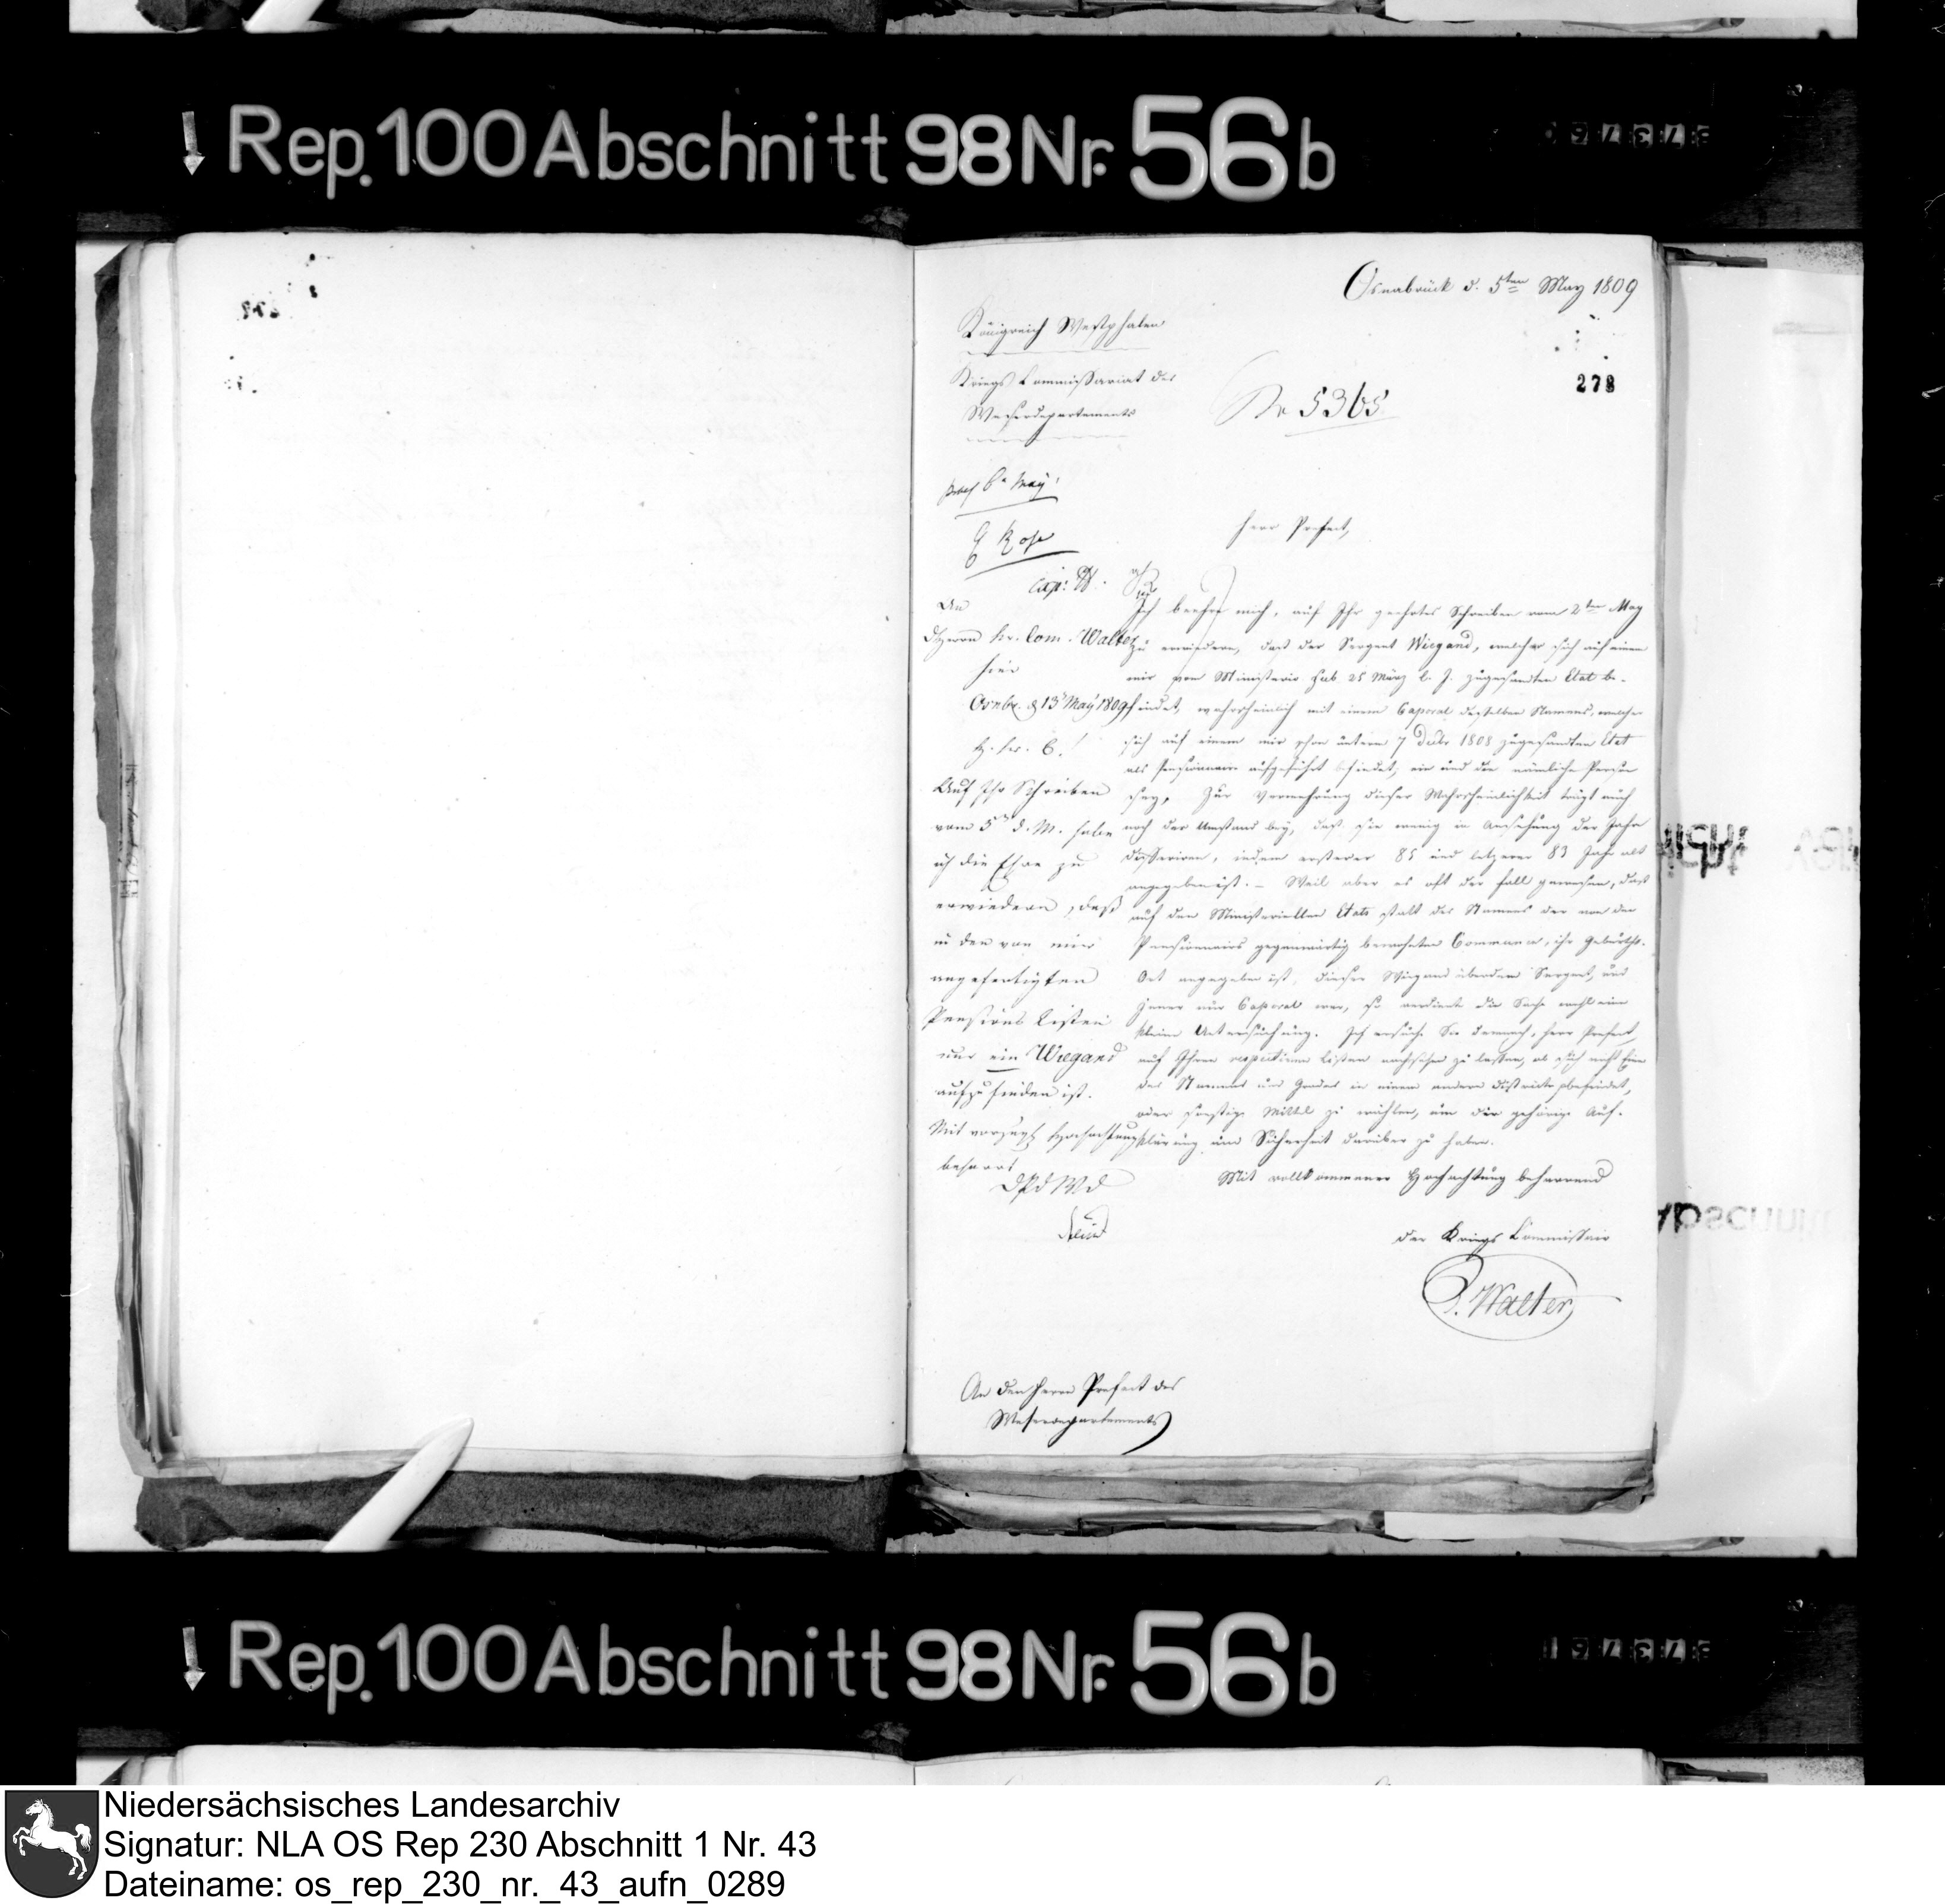 Rep. 100 Abschnitt 98 Nr. 56b
Osnabrück d. 5ten May 1809
Königreich Westphalen
278
Kriegs Commissariat des
Weserdepartements
Nr 5365
6n May
Herr Prefect,
An
Herrn Kr. Com. Walter
hier
Osnbr. d 13 May 1809
Auf Ihr Schreiben
vom 5n d. M. habe
ich die Ehre zu
erwiedern, daß
in den von mir
angefertigten
Pensions Listen
nur ein Wiegand
aufzufinden ist.
Mit vorzügl. Hochachtung
beharrt
DPdWd
Ich beehre mich, auf Ihr geehrtes Schreiben vom 2ten May
zu erwiedern, daß der Sergent Wiegand, welcher sich auf einem
mir vom Ministerio sub 25 März l. J. zugesandten Etat be-
findet, wahrscheinlich mit einem Caporal desselben Namens, welcher
sich auf einem mir schon unterm 7 Decbr 1808 zugesandten Etat
als Pensionnair aufgeführt befindet, ein und die nämliche Person
sey. Zur Vermehrung dieser Wahrscheinlichkeit trägt auch
noch der Umstand bey, daß sie wenig in Ansehung der Jahre
differiren, indem ersterer 85 und letzterer 83 Jahr alt
angegeben ist. – Weil aber es oft der Fall gewesen, daß
auf den Ministeriellen Etats statt des Namens der von den
Pensionnairs gegenwärtig bewohnten Commune, ihr Geburths-
Ort angegeben ist, dieser Wiegand überdem Sergent, und
jener nur Caporal war, so verdient die Sache wohl eine
kleine Untersuchung. Ich ersuche Sie demnach, Herr Prefect,
auf Ihren respectiven Listen nachsehen zu lassen, ob sich nicht Einer
des Namens und Grades in einem andern Districte befindet,
oder sonstige Mittel zu wählen, um die gehörige Auf-
klärung und Sicherheit darüber zu haben.
Mit vollkommener Hochachtung beharrend
der Kriegs Commissair
Walter
An den Herrn Prefect des
Weserdepartements
Rep. 100 Abschnitt 98 Nr. 56b
Niedersächsisches Landesarchiv
Signatur: NLA OS Rep 230 Abschnitt 1 Nr. 43
Dateiname: os_rep_230_nr._43_aufn_0289